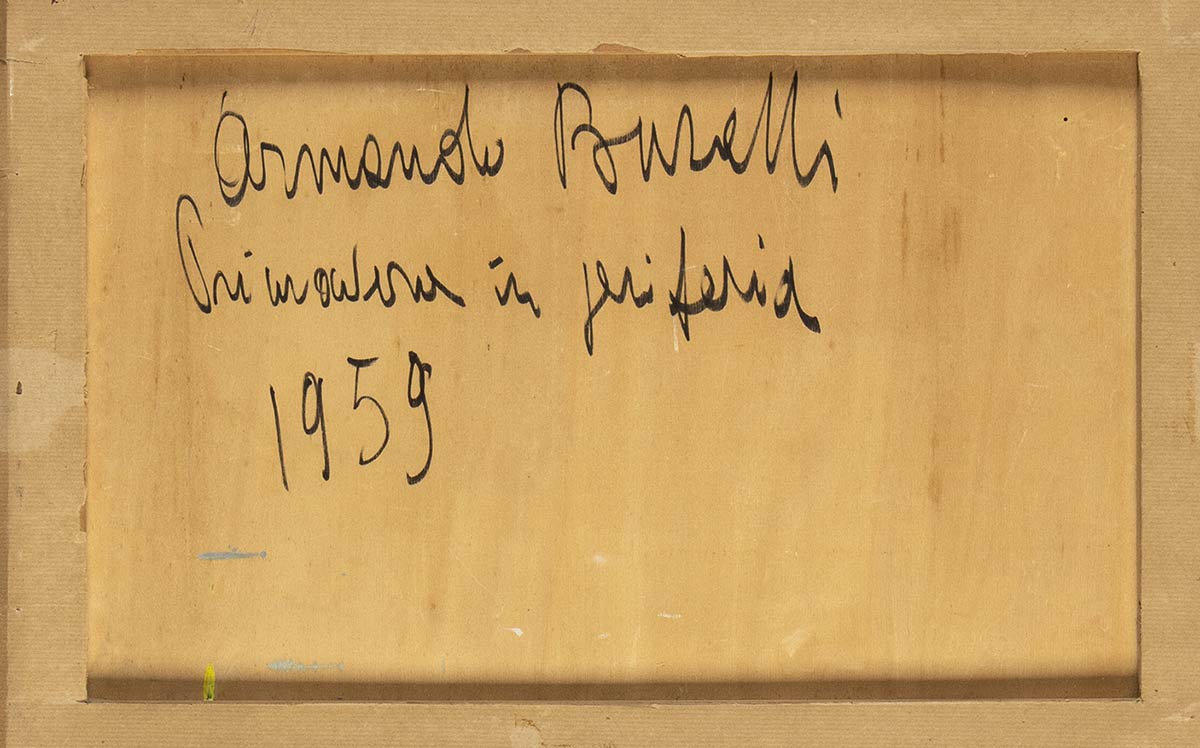 Armando Buratti
Primavera in periferia
1959